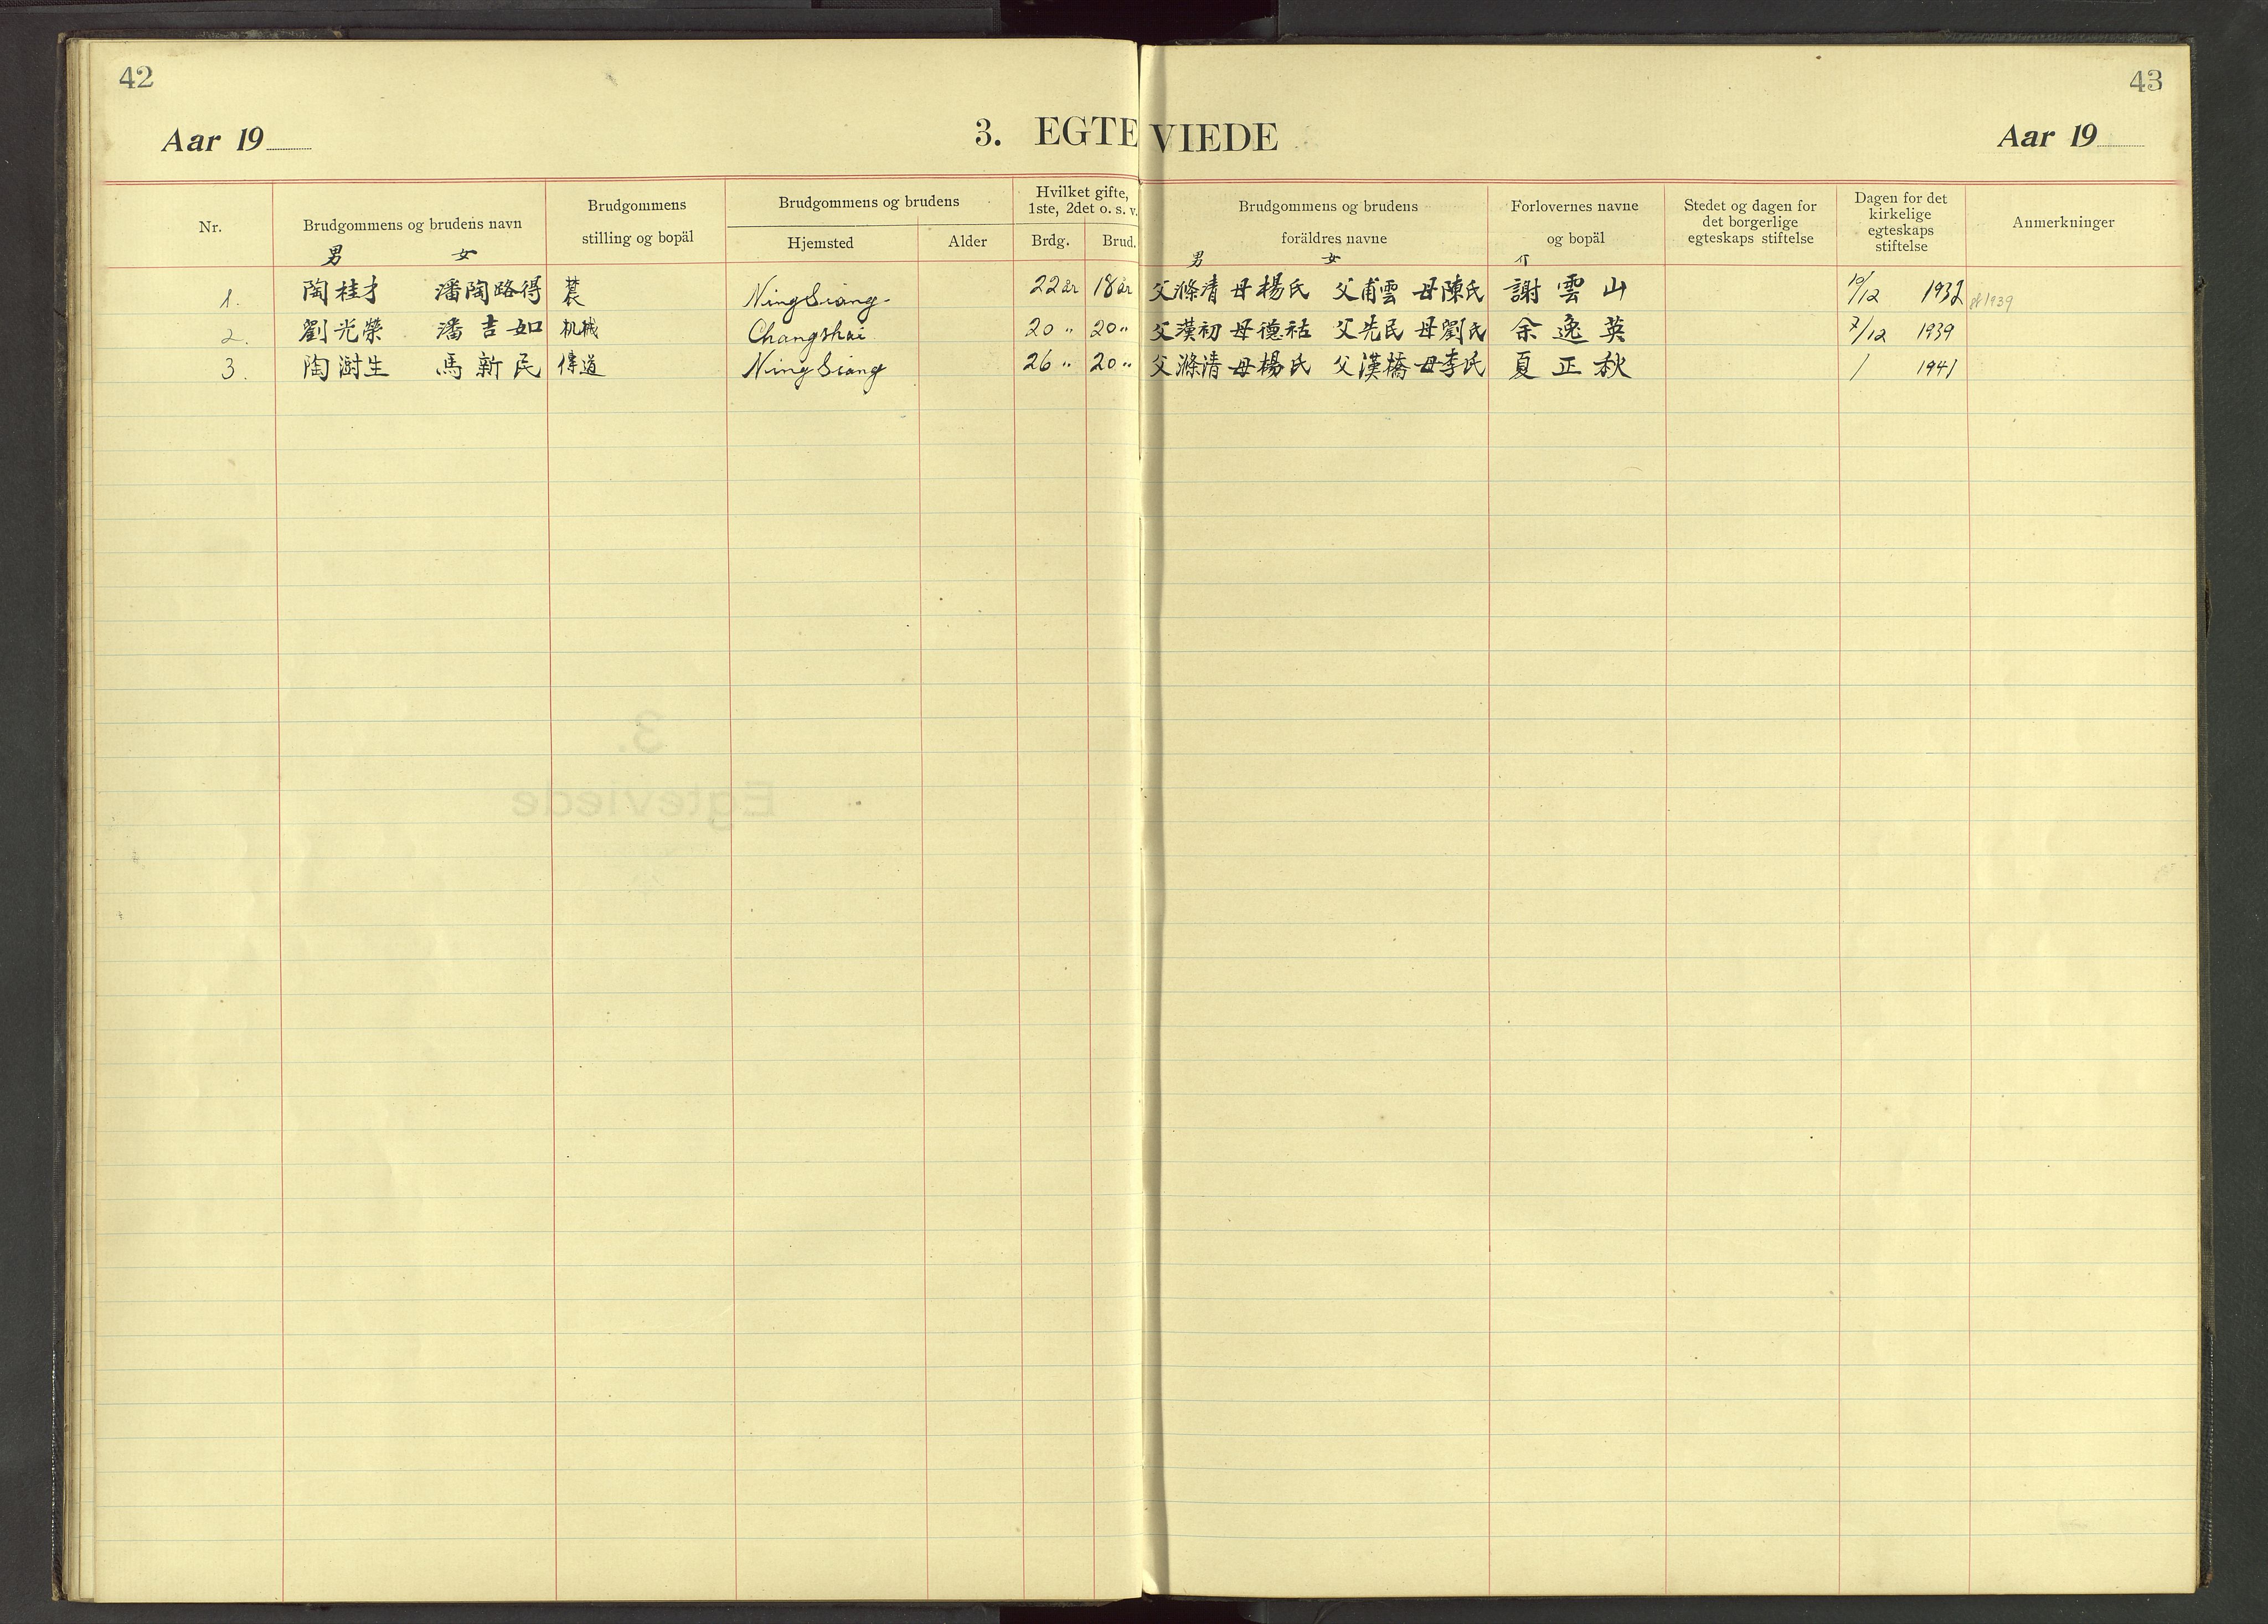 42
43
Aar 19
3. EGTEVIEDE
Aar 19
Nr.
Brudgommens og brudens navn
男 女
Brudgommens
stilling og bopäl
Brudgommens og brudens
Hjemsted
Alder
Hvilket gifte,
1ste, 2det o. s. v.
Brdg.
Brud.
Brudgommens og brudens
foräldres navne
男 女
Forlovernes navne
og bopäl
Stedet og dagen for
det borgerlige
egteskaps stiftelse
Dagen for det
kirkelige
egteskaps
stiftelse
Anmerkninger
1. 陶桂才 潘陶路得 農 Ningsiang 22 år 18 år 父滌清 母楊氏 父甫雲 母陳氏 謝雲山 10/12 1939
2. 劉光榮 潘吉如 机械 Changshai 20 " 20 " 父漢初 母德祜 父先民 母劉氏 余逸英 7/12 1939
3. 陶澍生 馬新民 傳道 Ningsiang 26 " 20 " 父滌清 母楊氏 父漢橋 母李氏 夏正秋 / 1941